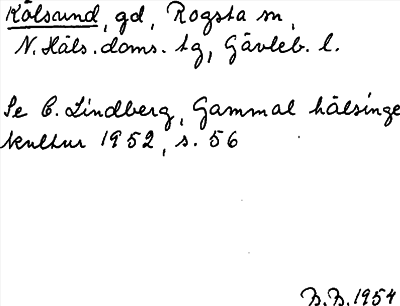 Kölsund, gd, Rogsta sn,
N. Häls. doms. tg, Gävleb. l.
Se C. Lindberg, Gammal hälsinge
kultur 1952, s. 56
B.B. 1954